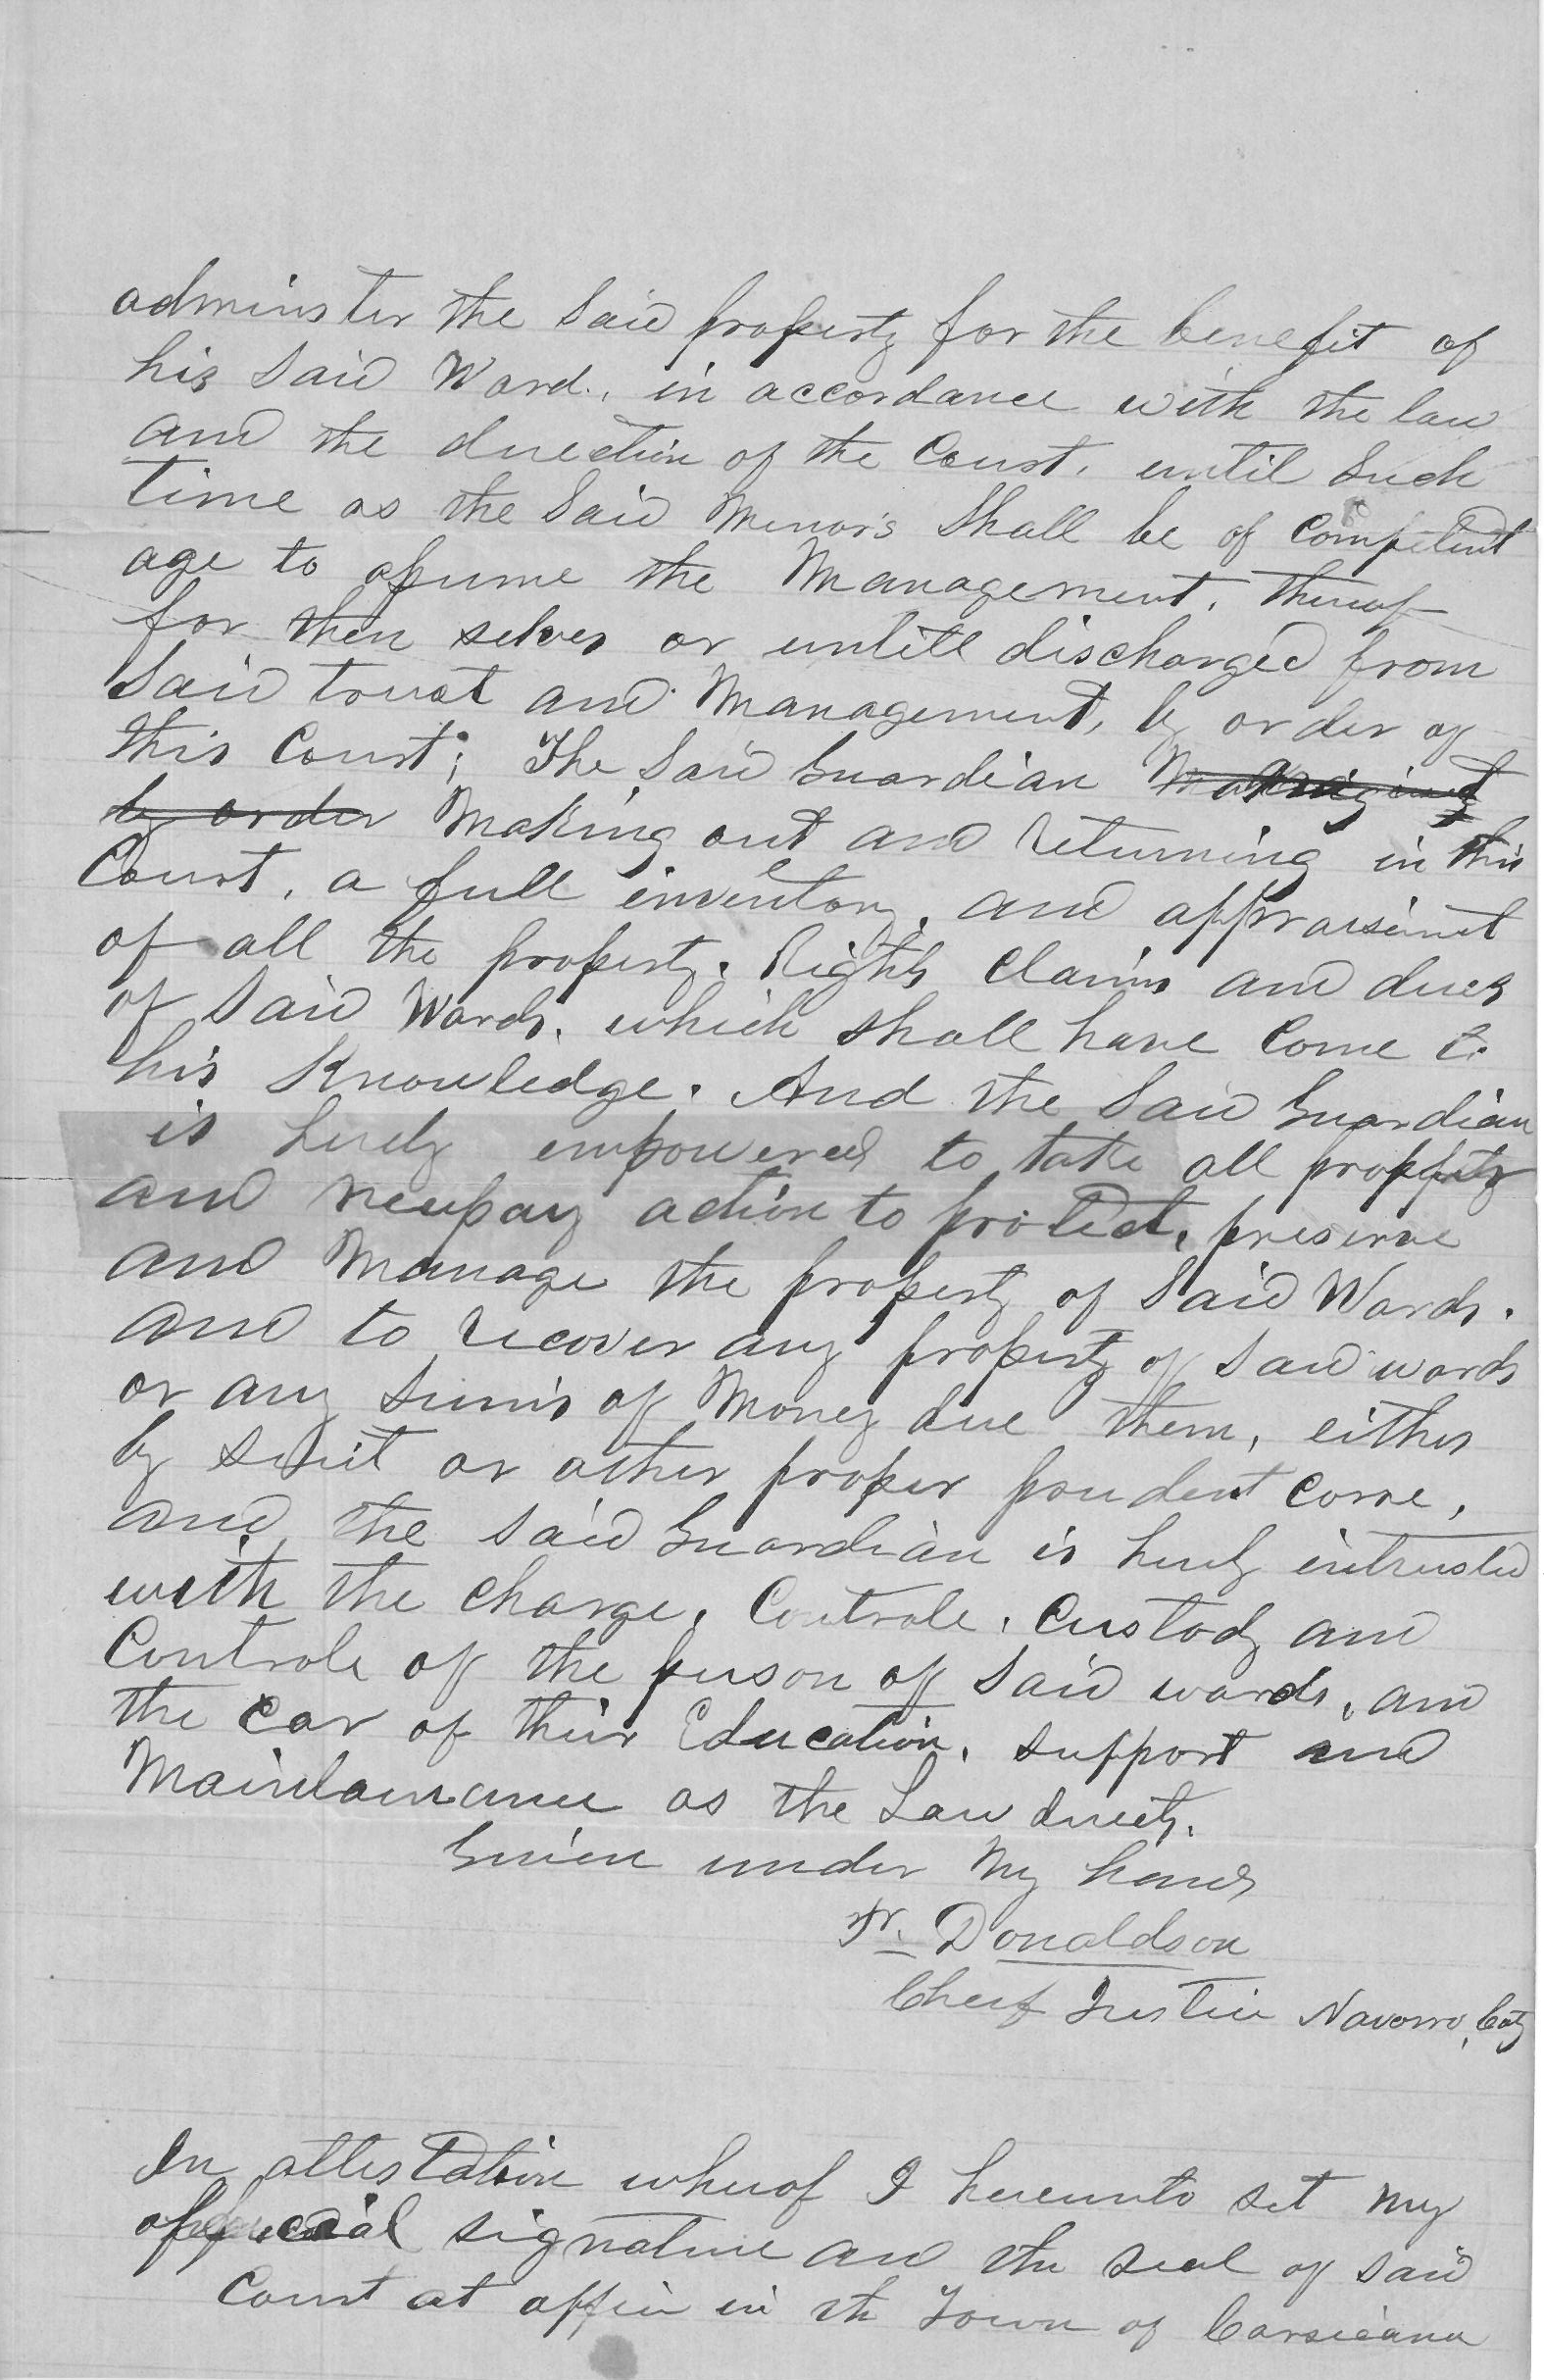 adminster the Said property for the benefit of
his Said Ward. in accordance with the law
and the direction of the Court. until Such
time as the Said Minors Shall be of Competent
age to assume the Management. thereof
for them selves or untill discharged from
Said trust and Management, by order of
this Court; The Said Guardian
by order Making out and returning in this
Court, a full inventory. and appraisment
of all the property. Rights Claims and dues
of Said Wards. which shall have Come to
his Knowledge. And the Said Guardian
is hereby empowered to take all proper
and necessary action to protect, preserve
and Manage the property of Said Wards.
and to recover any property of Said wards
or any Sums of Money due them, either
by Suit or other proper prudent
and the Said Guardian is hereby intrusted
with the Charge, Controle, Custody and
Controle of the person of Said wards, and
the Car of their Education, Support and
Maintainance as the Law directs.
Given under My hand
Donaldson
Cheif Justice Navarro, Coty
In attestation wherof I hereunto set my
official signature and the seal of Said
Court at office in th Town of Corsicana